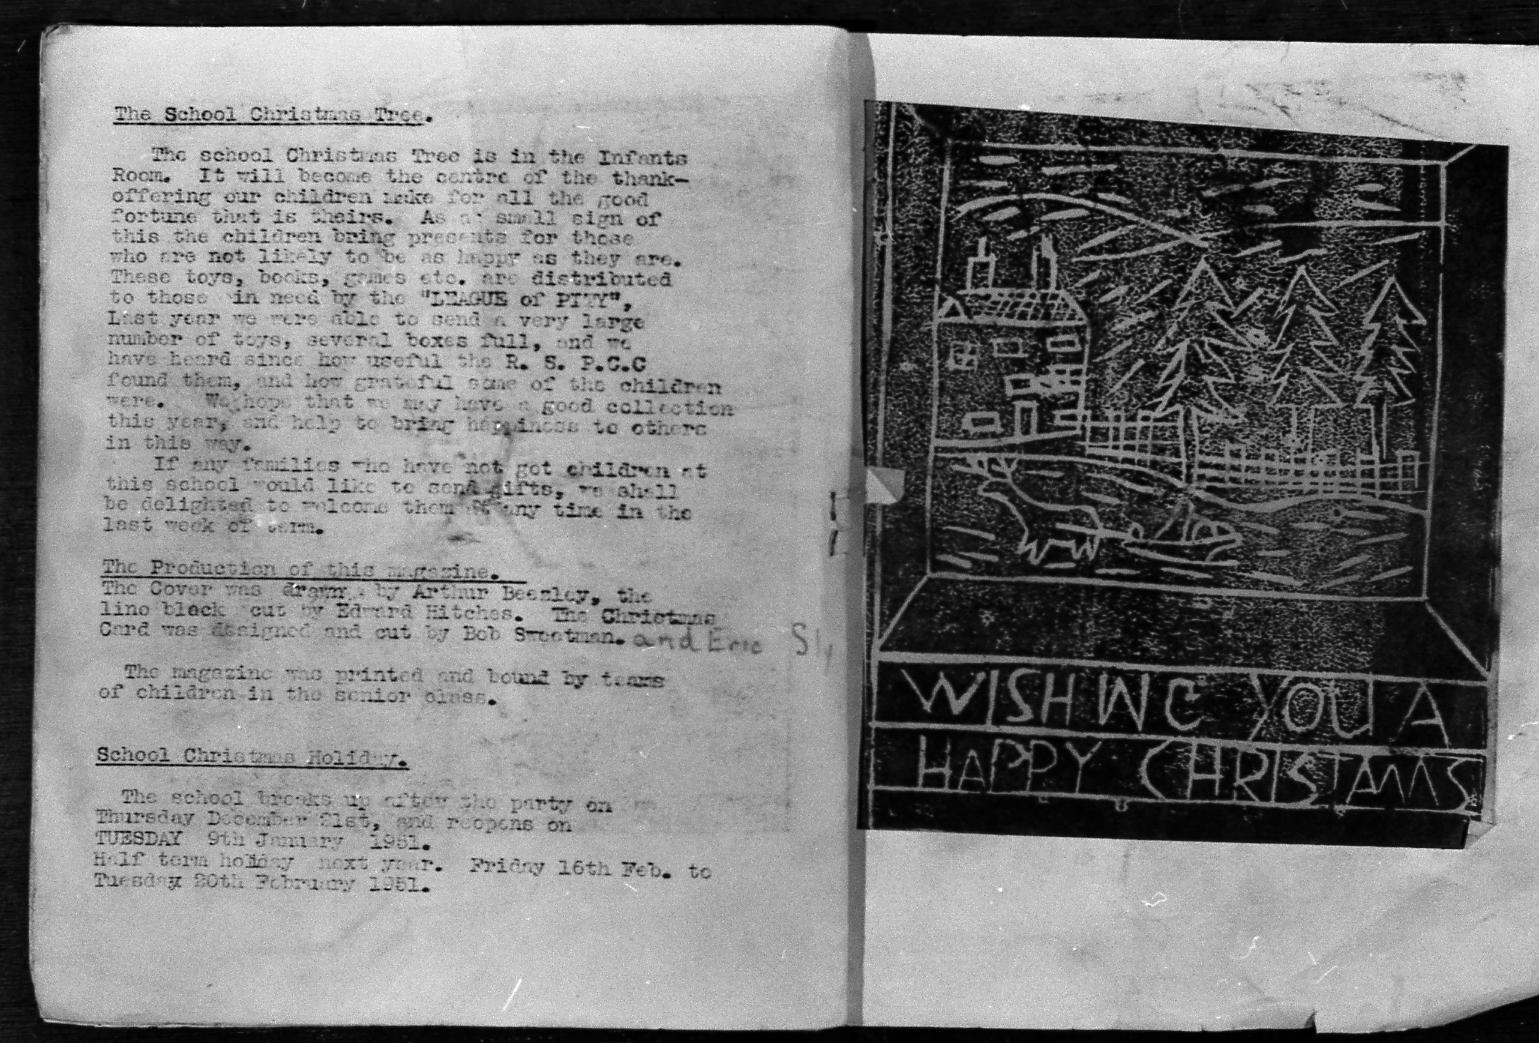 The School Christmas Tree.
The school Christmas Tree is in the Infants
Room. It will become the centre of the thank-
offering our children make for all the good
fortune that is theirs. As a small sign of
this the children bring presents for those
who are not likely to be as happy as they are.
These toys, books, games etc. are distributed
to those in need by the "LEAGUE of PITY",
Last year we were able to send a very large
number of toys, several boxes full, and we
have heard since how useful the R. S. P.C.C
found them, and how grateful some of the children
were. We hope that we may have a good collection
this year, and help to bring happiness to others
in this way.
If any families who have not got children at
this school would like to send gifts, we shall
be delighted to welcome them at any time in the
last week of term.
The Production of this magazine.
The Cover was drawn by Arthur Beesley, the
lino block cut by Edward Hitches. The Christmas
Card was designed and cut by Bob Sweetman. and Eric Sly
The magazine was printed and bound by teams
of children in the senior class.
School Christmas Holiday.
The school breaks up after the party on
Thursday December 21st, and reopens on
TUESDAY 9th January 1951.
Half term holiday next year. Friday 16th Feb. to
Tuesday 20th February 1951.
WISHING YOU A
HAPPY CHRISTMAS